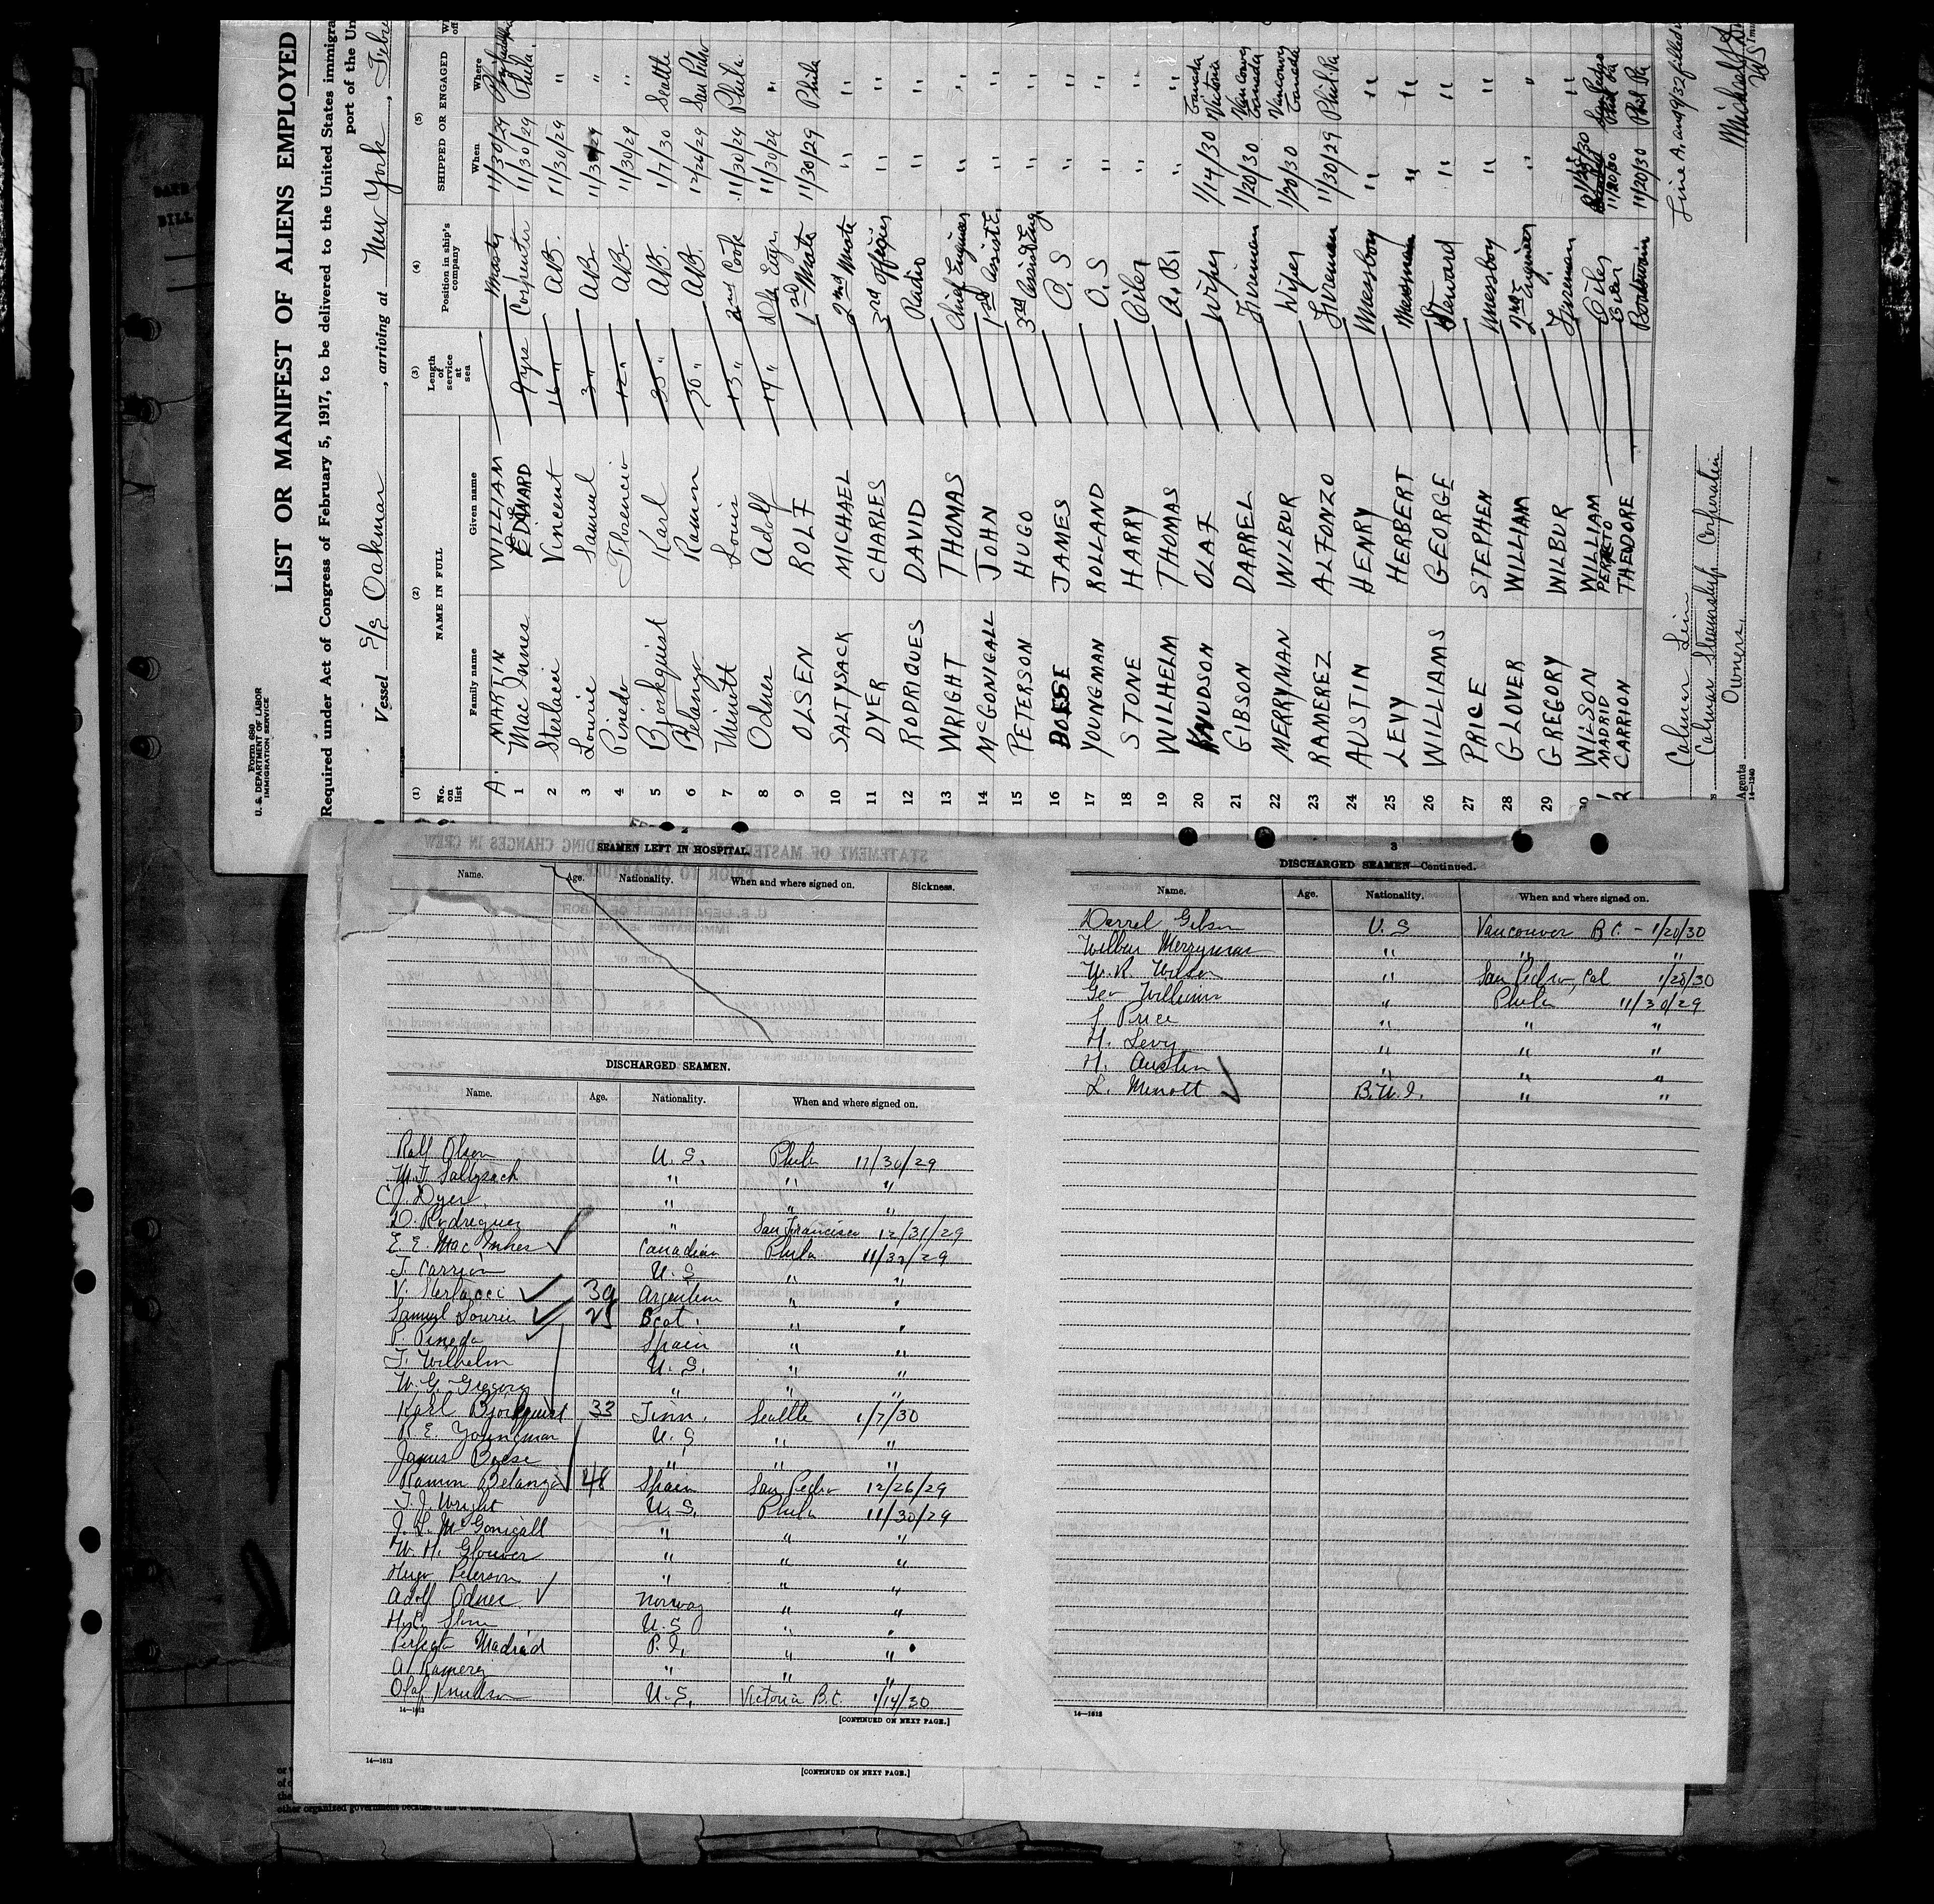 Form 689
U. S. DEPARTMENT OF LABOR
IMMIGRATION SERVICE
LIST OR MANIFEST OF ALIENS EMPLOYED
Required under Act of Congress of February 5, 1917, to be delivered to the United States immigra
port of the Un
Vessel S/S Oakmar, arriving at New York, Febr
(1) (2) (3) (4) (5)
No. on list NAME IN FULL Length of service at sea Position in ship's company SHIPPED OR ENGAGED
Family name Given name When Where
A. MARTIN WILLIAM Master 11/30/29
1 Mac Innes EDWARD 9 yrs Carpenter 11/30/29 Phila.
2 Sterlacci Vincent 16 " A.B. 11/30/29 "
3 Lourie Samuel 3 " A.B. 11/30/29 "
4 Pineda Florencio 12 " A.B. 11/30/29 "
5 Bjorkquist Karl 35 " A.B. 1/7/30 Seattle
6 Belanzo Ramon 30 " A.B. 12/26/29 San Pedro
7 Minott Louis 13 " 2nd Cook 11/30/29 Phila.
8 Odner Adolf 14 " Dk Engr. 11/30/29 "
9 OLSEN ROLF 1st Mate 11/30/29 Phila
10 SALTYSACK MICHAEL 2nd Mate " "
11 DYER CHARLES 3rd Officer " "
12 RODRIQUES DAVID Radio " "
13 WRIGHT THOMAS Chief Engineer " "
14 McGONIGALL JOHN 1st Assist E. " "
15 PETERSON HUGO 3rd Assist Eng " "
16 BOESE JAMES O. S " "
17 YOUNGMAN ROLLAND O. S " "
18 STONE HARRY Oiler " "
19 WILHELM THOMAS A. B. " "
20 KNUDSON OLAF Wiper 1/14/30 Victoria Canada
21 GIBSON DARREL Fireman 1/20/30 Vancouver Canada
22 MERRYMAN WILBUR Wiper 1/20/30 Vancouver Canada
23 RAMEREZ ALFONZO Fireman 11/30/29 Phil. Pa
24 AUSTIN HENRY Messboy " "
25 LEVY HERBERT Messman " "
26 WILLIAMS GEORGE Steward " "
27 PRICE STEPHEN Messboy " "
28 GLOVER WILLIAM 2nd Engineer " "
29 GREGORY WILBUR Fireman " "
30 WILSON WILLIAM Oiler 1/28/30 San Pedro
1 MADRID PERFECTO Oiler 11/20/30 Phil Pa
2 CARRION THEODORE Boatswain 11/20/30 Phil Pa
Calmar Line
Calmar Steamship Corporation
Owners.
Agents
14—1240
Line A, and 9/32 filled
SEAMEN LEFT IN HOSPITAL.
Name. Age. Nationality. When and where signed on. Sickness.
DISCHARGED SEAMEN.
Name. Age. Nationality. When and where signed on.
Rolf Olson U. S. Phila 11/30/29
M. J. Saltysack " " "
C. J. Dyer " " "
D. Rodriguez " San Francisco 12/31/29
E. E. Mac Innes Canadian Phila 11/30/29
T. Carrion U. S " "
V. Sterlacci 39 Argentine " "
Samuel Lourie 25 Scot. " "
P. Pineda Spain " "
T. Wilhelm U. S. " "
W. G. Gregory " " "
Karl Bjorkquist 33 Finn. Seattle 1/7/30
R. E. Youngman U. S " "
James Boese " " "
Ramon Belanzo 48 Spain San Pedro 12/26/29
T. J. Wright U. S. Phila 11/30/29
J. L. McGonigall " " "
W. H. Glover " " "
Hugo Peterson " " "
Adolf Odner Norway " "
H. C. Stone U. S " "
Perfecto Madrid P. I. " "
A. Ramerez " " "
Olaf Knudson U. S. Victoria B.C. 1/14/30
14—1613
[CONTINUED ON NEXT PAGE.]
14—1613
[CONTINUED ON NEXT PAGE.]
3
DISCHARGED SEAMEN—Continued.
Name. Age. Nationality. When and where signed on.
Darrel Gibson U. S Vancouver B.C. - 1/20/30
Wilbur Merryman " " "
W. R. Wilson " San Pedro, Cal 1/28/30
Geo Williams " Phila 11/30/29
S. Price " " "
H. Levy " " "
H. Austin " " "
L. Minott B.W.I. " "
14—1613
other organized government because of his or their